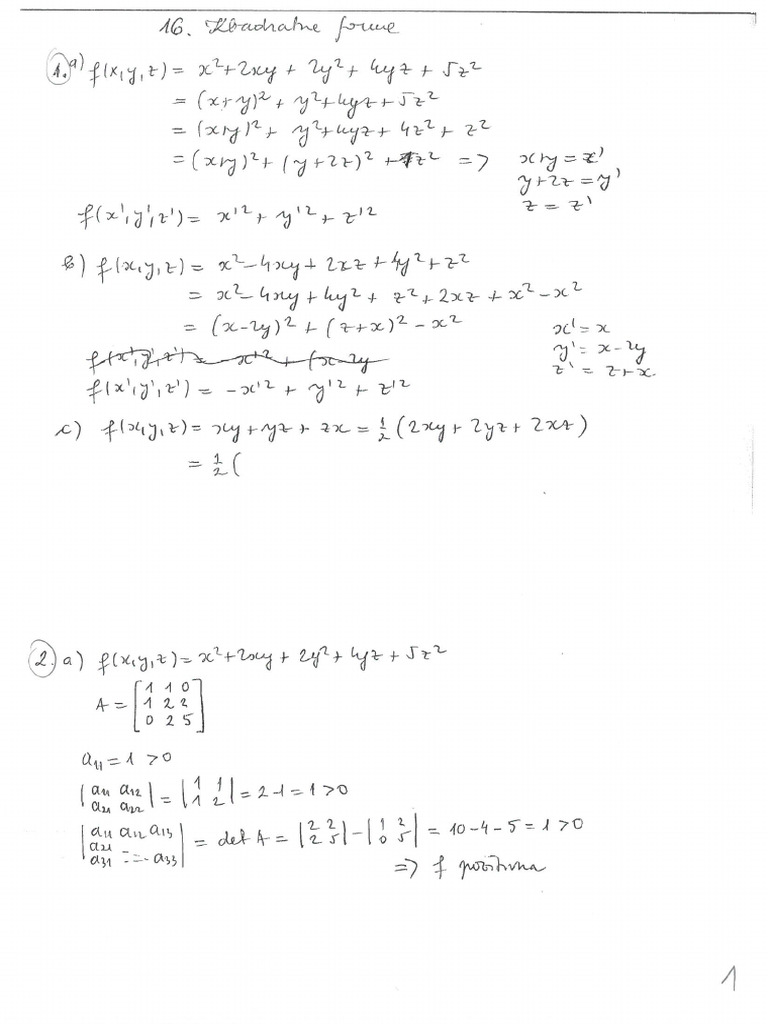 16. Kvadratne forme
1. a) f(x,y,z) = x² + 2xy + 2y² + 4yz + 5z²
= (x+y)² + y² + 4yz + 5z²
= (x+y)² + y² + 4yz + 4z² + z²
= (x+y)² + (y+2z)² + z² => x+y = x'
y+2z = y'
z = z'
f(x',y',z') = x'² + y'² + z'²
b) f(x,y,z) = x² - 4xy + 2xz + 4y² + z²
= x² - 4xy + 4y² + z² + 2xz + x² - x²
= (x-2y)² + (z+x)² - x²
x' = x
f(x',y',z') = -x'² + (x-2y
y' = x-2y
z' = z+x.
f(x',y',z') = -x'² + y'² + z'²
c) f(x,y,z) = xy + yz + zx = 1/2 (2xy + 2yz + 2xz)
= 1/2 (
2. a) f(x,y,z) = x² + 2xy + 2y² + 4yz + 5z²
A = [1 1 0
1 2 2
0 2 5]
a₁₁ = 1 > 0
|a₁₁ a₁₂
a₂₁ a₂₂| = |1 1
1 2| = 2-1 = 1 > 0
|a₁₁ a₁₂ a₁₃
a₂₁
a₃₁ --- a₃₃| = det A = |2 2
2 5| - |1 2
0 5| = 10-4-5 = 1 > 0
=> f pozitivna
1